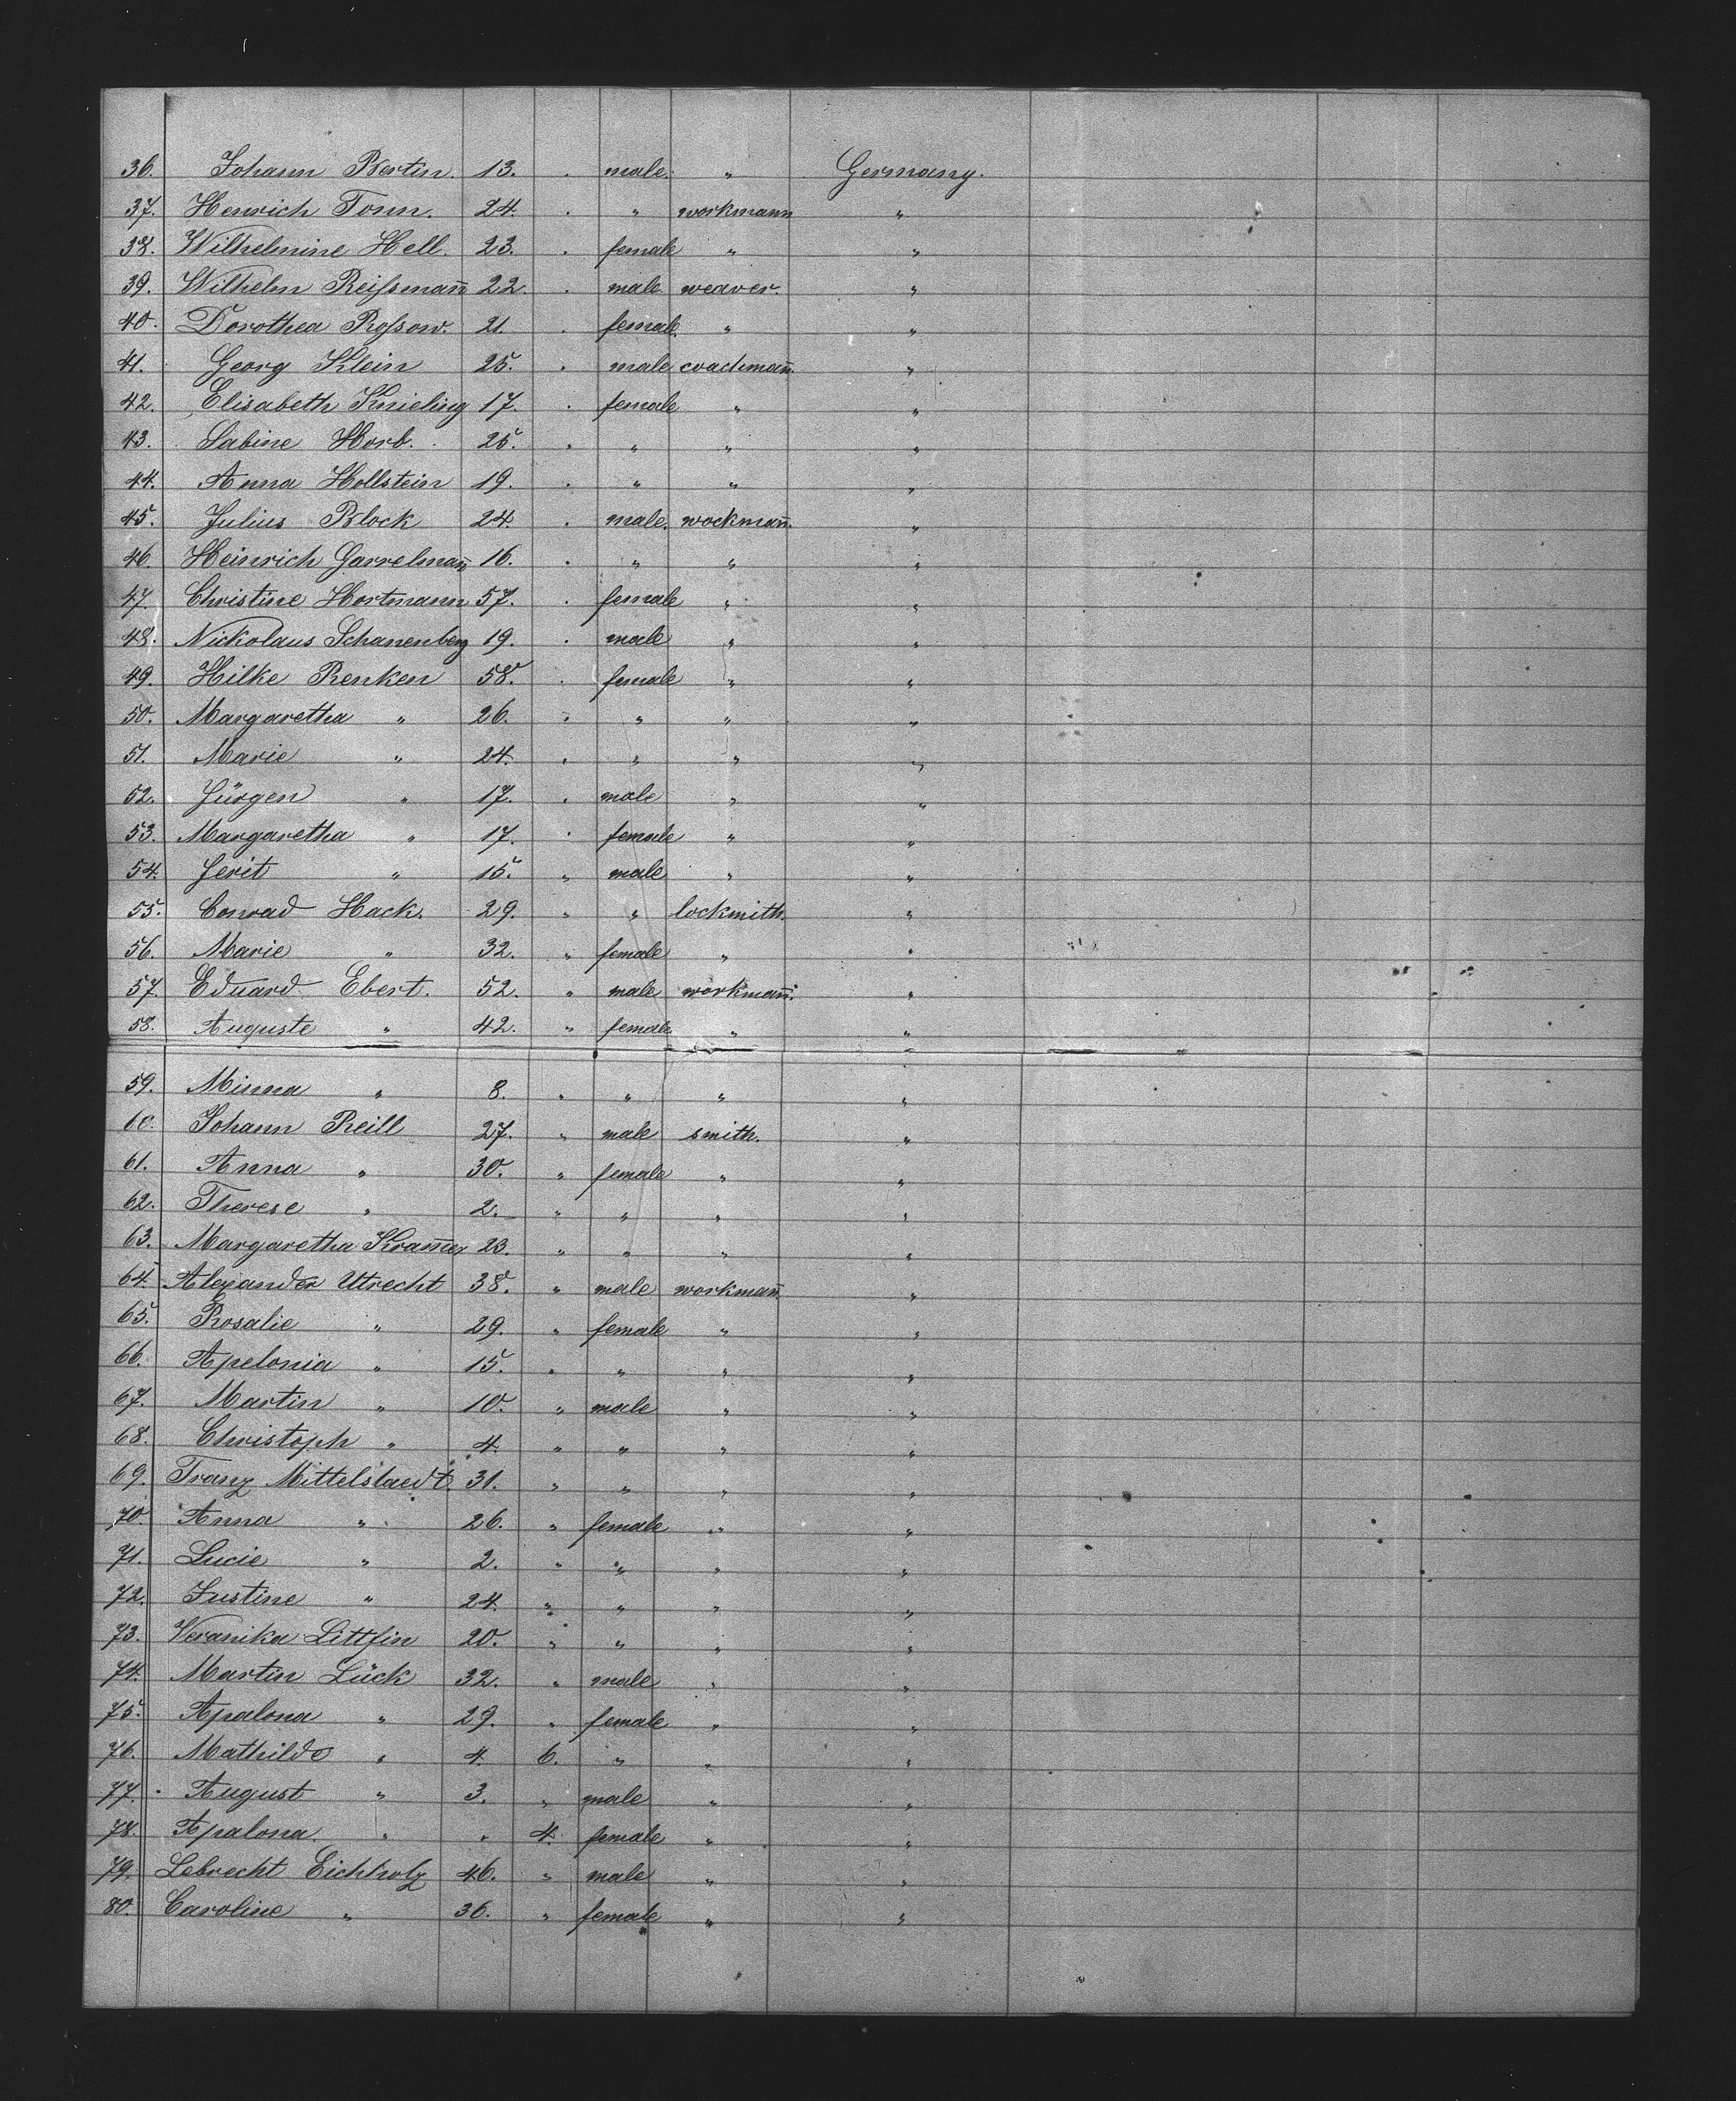 36. Johann Bertin. 13. . male. " Germany.
37. Henrich Tonn. 24. . " workmann "
38. Wilhelmine Hell. 23. . female " "
39. Wilhelm Reißmañ 22. . male weaver. "
40. Dorothea Roßow. 21. . female. " "
41. Georg Klein 25. . male coachmañ. "
42. Elisabeth Knieling 17. . female " "
43. Sabine Horb. 25. . " " "
44. Anna Hollstein 19. . " " "
45. Julius Block 24. . male. wockmañ. "
46. Heinrich Garrelmañ 16. . " " "
47. Christine Hortmann 57. . female " "
48. Nickolaus Schanenberg 19. . male " "
49. Hilke Renken 58. . female " "
50. Margaretha " 26. . " " "
51. Marie " 24. . " " "
52. Jürgen " 17. . male " "
53. Margaretha " 17. . female " "
54. Jerit " 15. " male " "
55. Conrad Hack. 29. " " lockmith. "
56. Marie " 32. " female " "
57. Eduard Ebert. 52. " male workmañ. "
58. Auguste " 42. " female. " "
59. Minna " 8. " " " "
60. Johann Reill 27. " male smith. "
61. Anna " 30. " female " "
62. Therese " 2. " " " "
63. Margaretha Kram̄er 23. " " " "
64. Alexander Utrecht 38. " male workmañ. "
65. Rosalie " 29. " female " "
66. Apelonia " 15. " " " "
67. Martin " 10. " male " "
68. Christoph " 4. " " " "
69. Franz Mittelstaedt. 31. " " " "
70. Anna " 26. " female " "
71. Lucie " 2. " " " "
72. Justine " 24. " " " "
73. Veranika Littfin 20. " " " "
74. Martin Lück 32. " male " "
75. Apalona " 29. " female " "
76. Mathilde " 4. 6. " " "
77. August " 3. " male " "
78. Apalona. " " 4. female " "
79. Lebrecht Eichholz 46. " male " "
80. Caroline " 36. " female " "